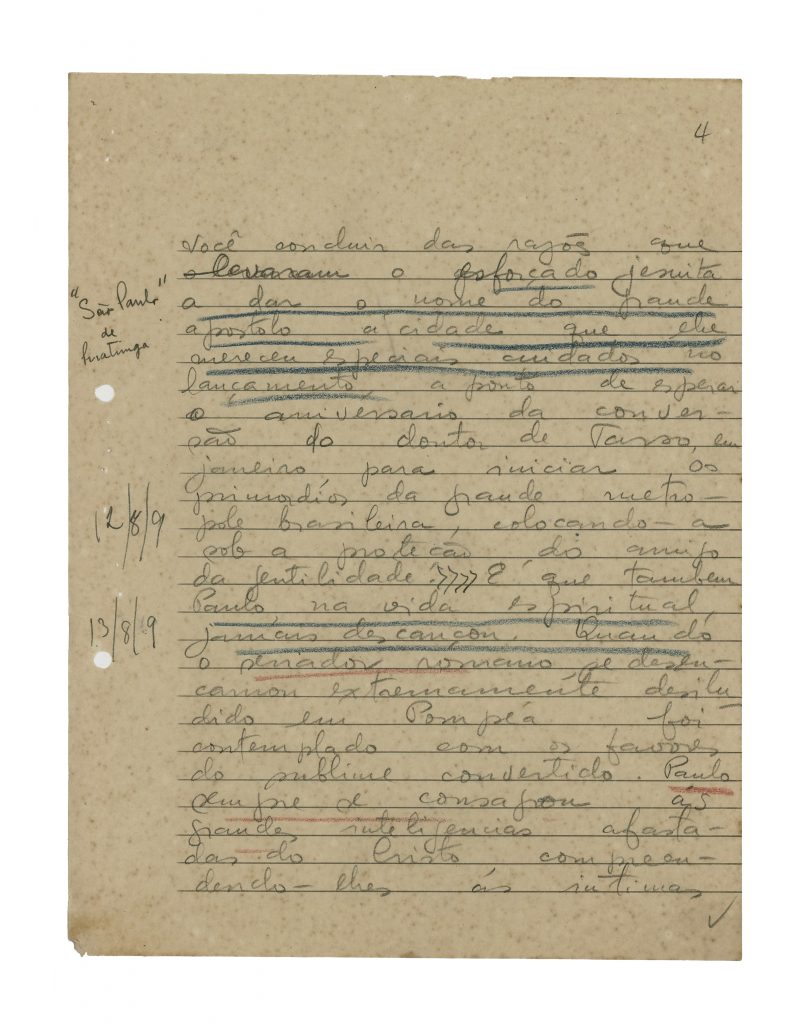 4
Você concluir das razões que
levaram o esforçado jesuita
a dar o nome do grande
apostolo a cidade que elle
mereceu especiais cuidados no
lançamento, a ponto de esperar
o aniversario da conver-
são do doutor de Tarso, em
janeiro para iniciar os
primordios da grande metro-
pole brasileira, colocando-a
sob a proteção do amigo
da gentilidade. E' que tambem
Paulo, na vida espiritual,
jamais descançou. Quando
o senador romano, se desen-
carnou extremamente desilu
dido em Pompéa foi
contemplado com os favores
do sublime convertido. Paulo
sempre se consagrou ás
grandes inteligencias afasta-
das do Cristo compreen-
dendo-lhes ás intimas
"São Paulo"
de
Piratininga
12/8/9
13/8/9